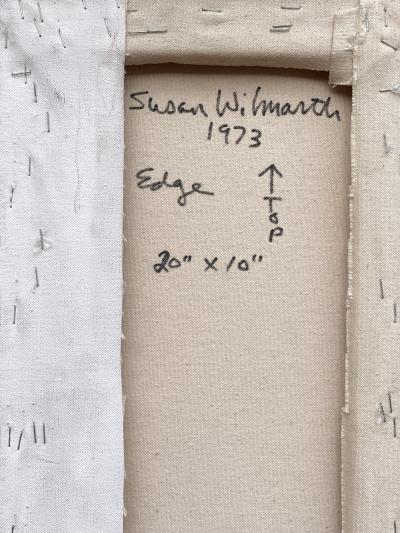 Susan Wilmarth
1973
Edge
↑
Top
20" x 10"